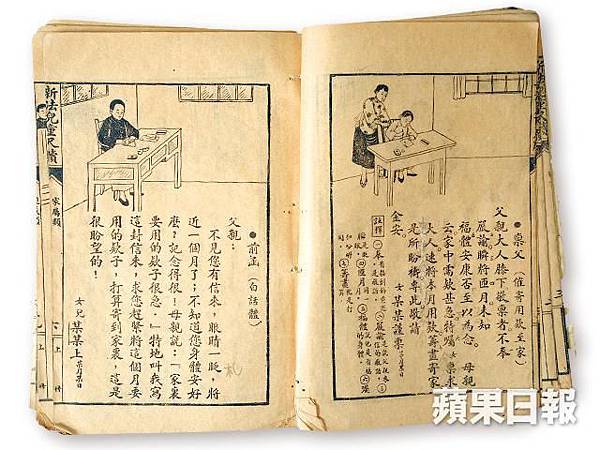 ●稟父(催寄用欵至家)
父親大人膝下敬稟者不奉
嚴諭瞬將匝月未知
福體安康否至以爲念 母親
云家中需欵甚急特囑 女稟求
大人速將本月用欵籌畫寄家
是所盼禱專此敬請
金安
女某某謹稟 某月某日
註釋
●前函(白話體)
父親:
不見您有信來,眼睛一眨,將
近一個月了;不知道您身體安好
麼?記念得很!母親說:「家裏
要用的欵子很急。」特地叫我寫
這封信來,求您趕緊將這個月要
用的欵子,打算寄到家裏,這是
很盼望的!
女兒 某某上 某月某日
新法兒童尺牘
家屬類
上冊
蘋果日報